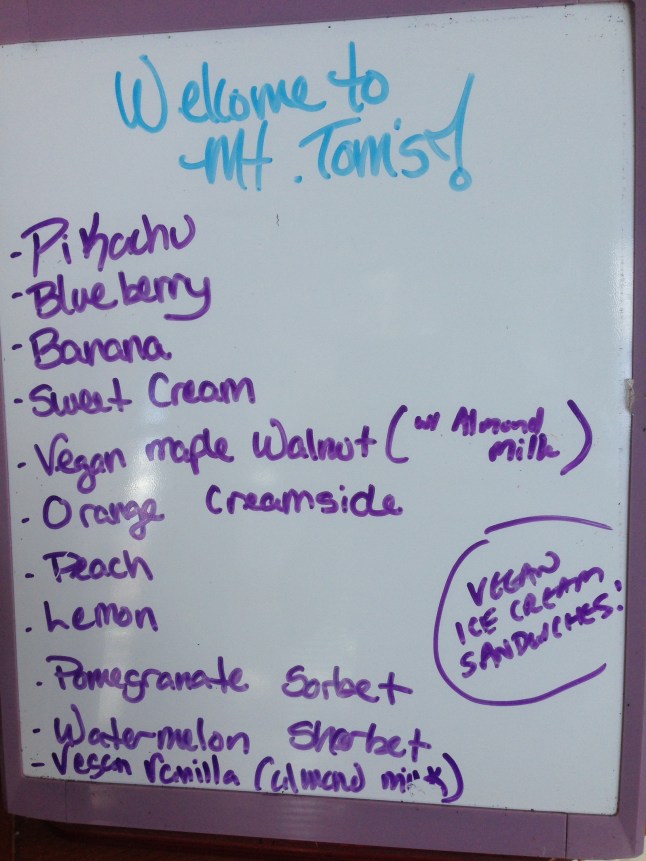 Welcome to
Mt. Tom's!
- Pikachu
- Blueberry
- Banana
- Sweet Cream
- Vegan maple Walnut (w/ Almond
milk)
- Orange Creamside
- Peach
- Lemon
- Pomegranate Sorbet
- Watermelon Sherbet
- Vegan Vanilla (almond milk)
VEGAN
ICE CREAM
SANDWICHES!